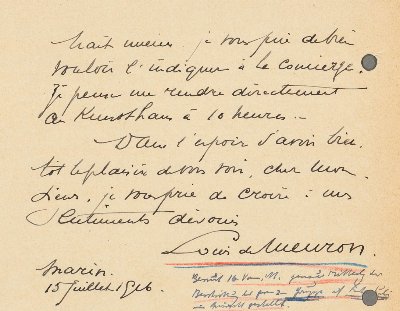 trait mieux, je vous prie de bien
vouloir l'indiquer à le concierge.
Je pense me rendre directement
au Kunsthaus à 10 heures. –
Dans l'espoir d'avoir bien
tôt le plaisir de vous voir, cher Mon
sieur, je vous prie de croire à mes
sentiments dévoués
Louis de Meuron.
Marin.
15 juillet 1916